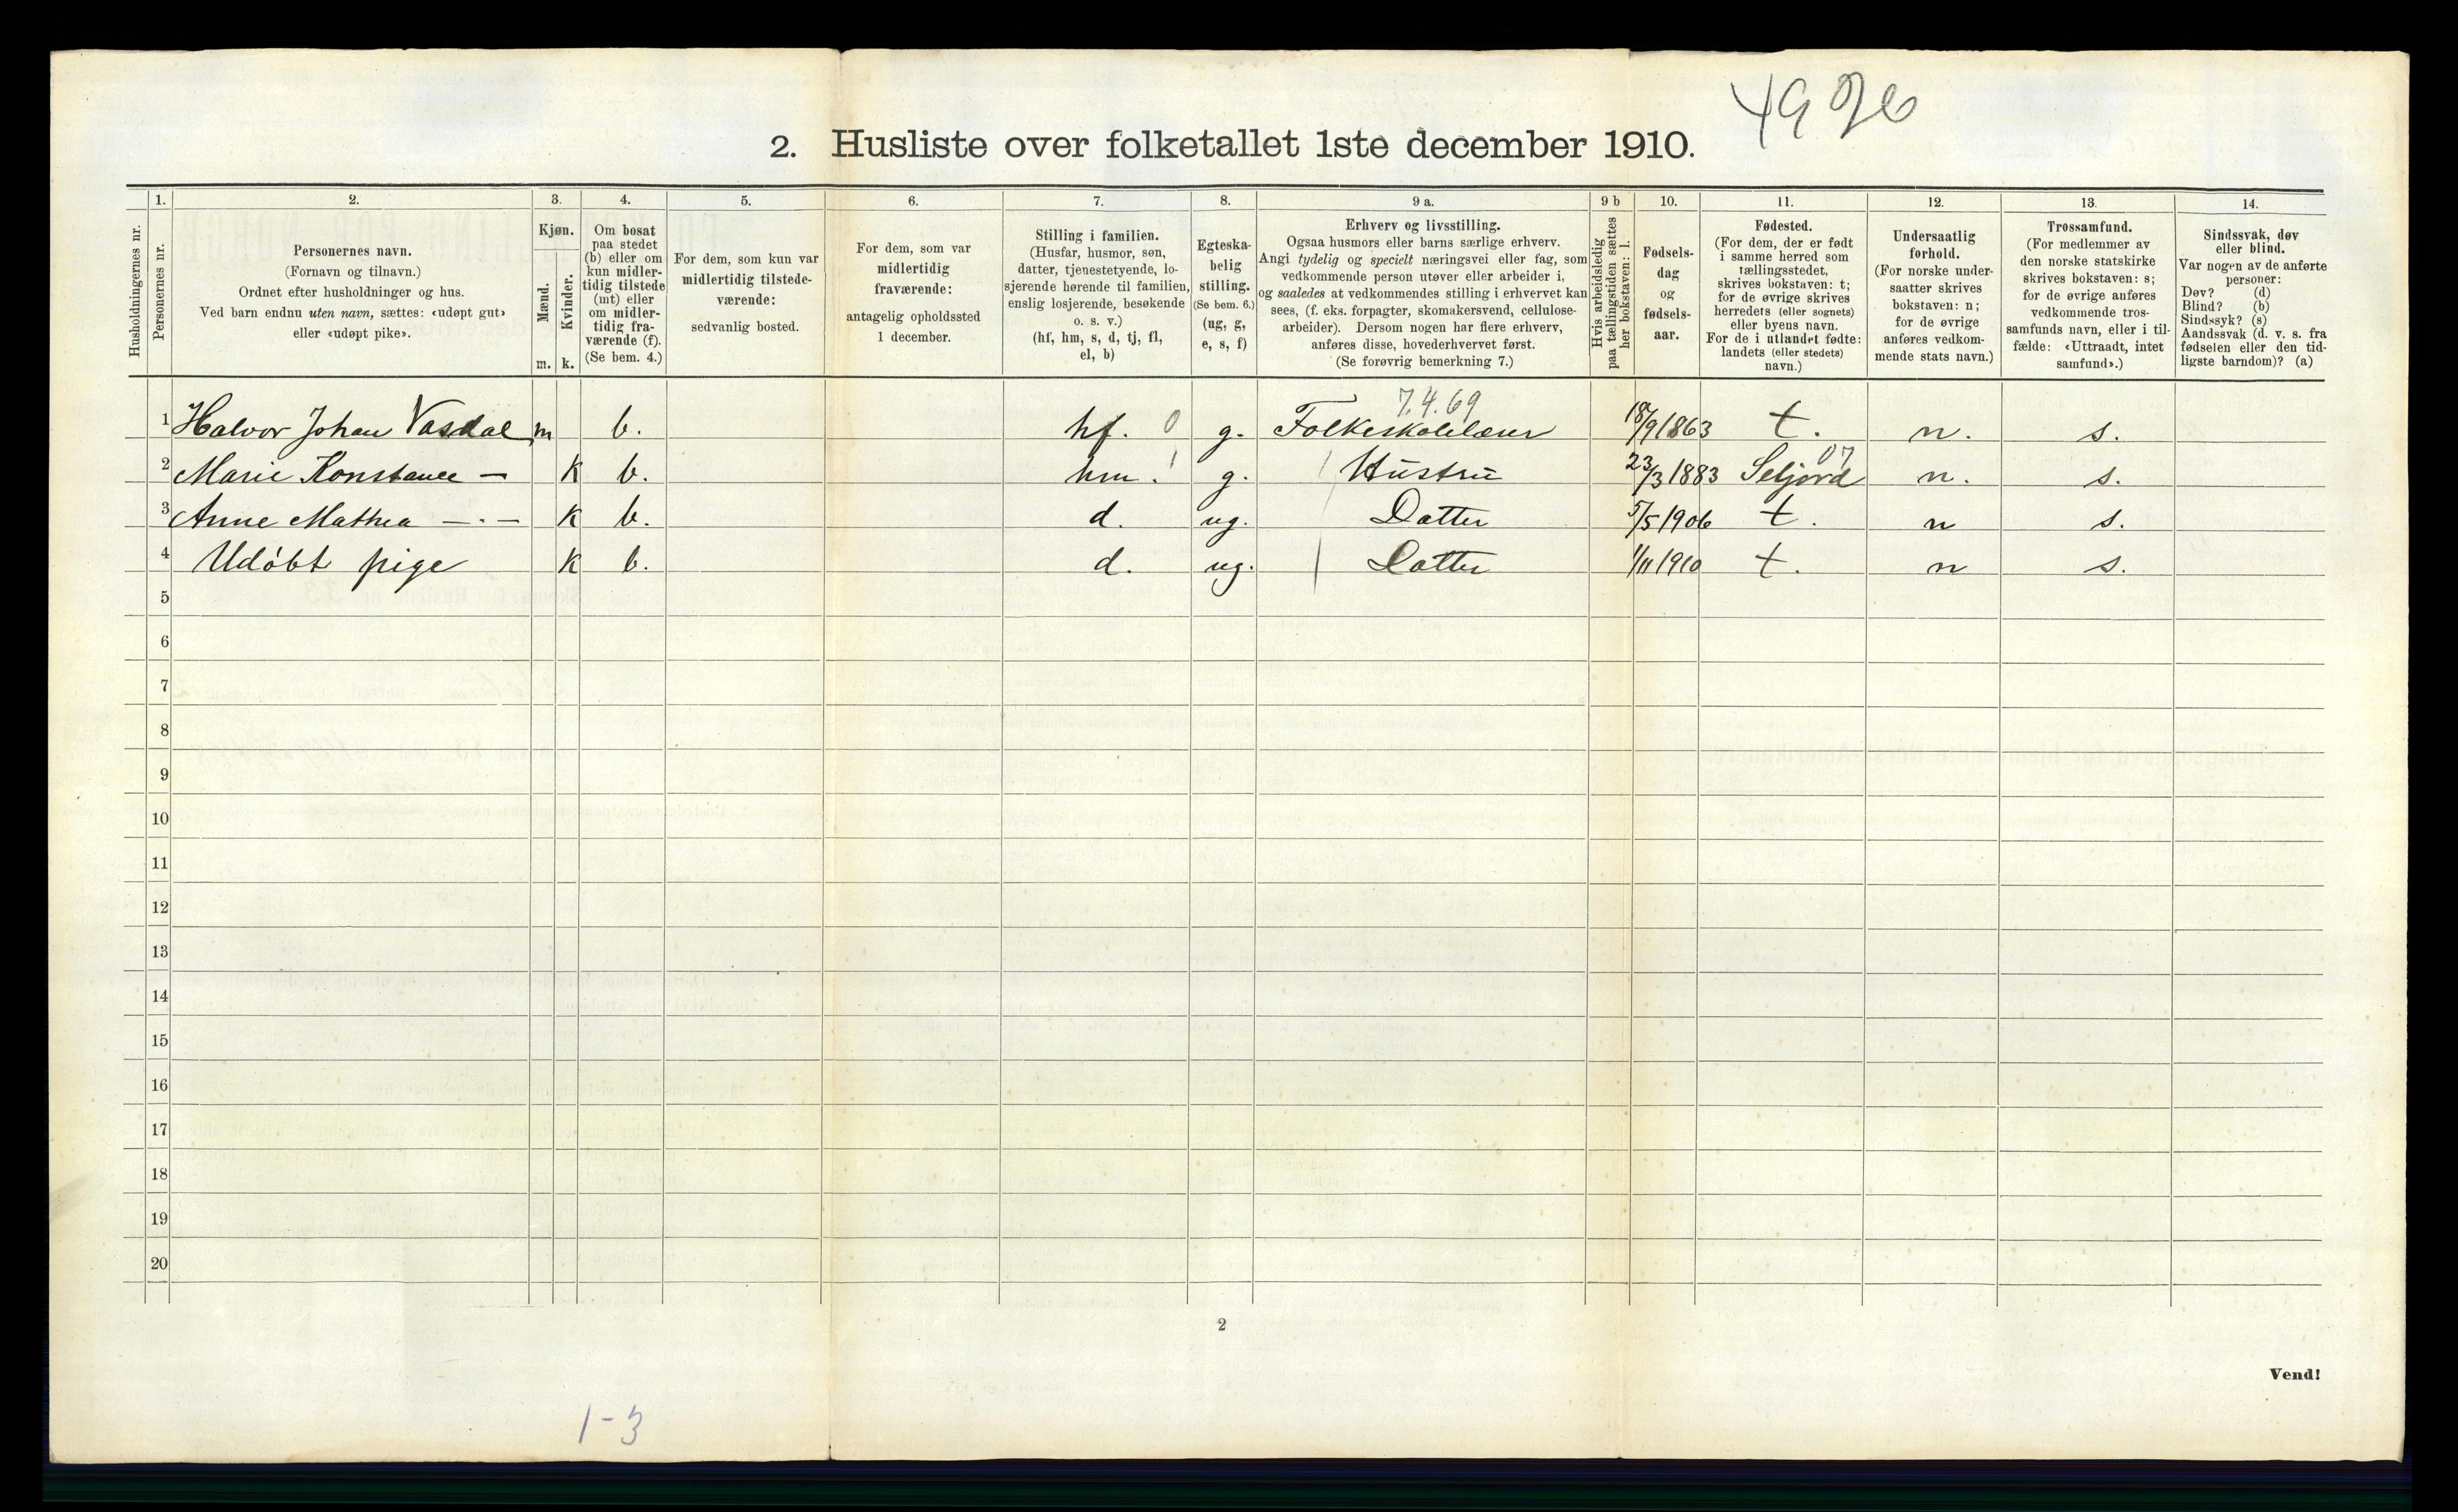 2. Husliste over folketallet 1ste december 1910.
Husholdningernes nr.
1. Personernes nr.
2. Personernes navn.
(Fornavn og tilnavn.)
Ordnet efter husholdninger og hus.
Ved barn endnu uten navn, sættes: «udøpt gut»
eller «udøpt pike».
3. Kjøn.
Mænd. m.
Kvinder. k.
4. Om bosat
paa stedet
(b) eller om
kun midler-
tidig tilstede
(mt) eller
om midler-
tidig fra-
værende (f).
(Se bem. 4.)
5. For dem, som kun var
midlertidig tilstede-
værende:
sedvanlig bosted.
6. For dem, som var
midlertidig
fraværende:
antagelig opholdssted
1 december.
7. Stilling i familien.
(Husfar, husmor, søn,
datter, tjenestetyende, lo-
sjerende hørende til familien,
enslig losjerende, besøkende
o. s. v.)
(hf, hm, s, d, tj, fl,
el, b)
8. Egteska-
belig
stilling.
(Se bem. 6.)
(ug, g,
e, s, f)
9 a. Erhverv og livsstilling.
Ogsaa husmors eller barns særlige erhverv.
Angi tydelig og specielt næringsvei eller fag, som
vedkommende person utøver eller arbeider i,
og saaledes at vedkommendes stilling i erhvervet kan
sees, (f. eks. forpagter, skomakersvend, cellulose-
arbeider). Dersom nogen har flere erhverv,
anføres disse, hovederhvervet først.
(Se forøvrig bemerkning 7.)
9 b Hvis arbeidsledig
paa tællingstiden sættes
her bokstaven: l.
10. Fødsels-
dag
og
fødsels-
aar.
11. Fødested.
(For dem, der er født
i samme herred som
tællingsstedet,
skrives bokstaven: t;
for de øvrige skrives
herredets (eller sognets)
eller byens navn.
For de i utlandet fødte:
landets (eller stedets)
navn.)
12. Undersaatlig
forhold.
(For norske under-
saatter skrives
bokstaven: n;
for de øvrige
anføres vedkom-
mende stats navn.)
13. Trossamfund.
(For medlemmer av
den norske statskirke
skrives bokstaven: s;
for de øvrige anføres
vedkommende tros-
samfunds navn, eller i til-
fælde: «Uttraadt, intet
samfund».)
14. Sindssvak, døv
eller blind.
Var nogen av de anførte
personer:
Døv? (d)
Blind? (b)
Sindssyk? (s)
Aandssvak (d. v. s. fra
fødselen eller den tid-
ligste barndom)? (a)
7.4.69
1 Halvor Johan Vasdal m b. hf. 0 g. Folkeskolelærer 18/9 1863 t. n. s.
07
2 Marie Konstance — k b. hm. 1 g. Hustru 23/3 1883 Seljord n. s.
3 Anne Mathea —.— k b. d. ug. Datter 5/5 1906 t. n s.
4 Udöbt pige k b. d. ug. Datter 1/11 1910 t. n s.
5
6
7
8
9
10
11
12
13
14
15
16
17
18
19
20
2
Vend!
1-3